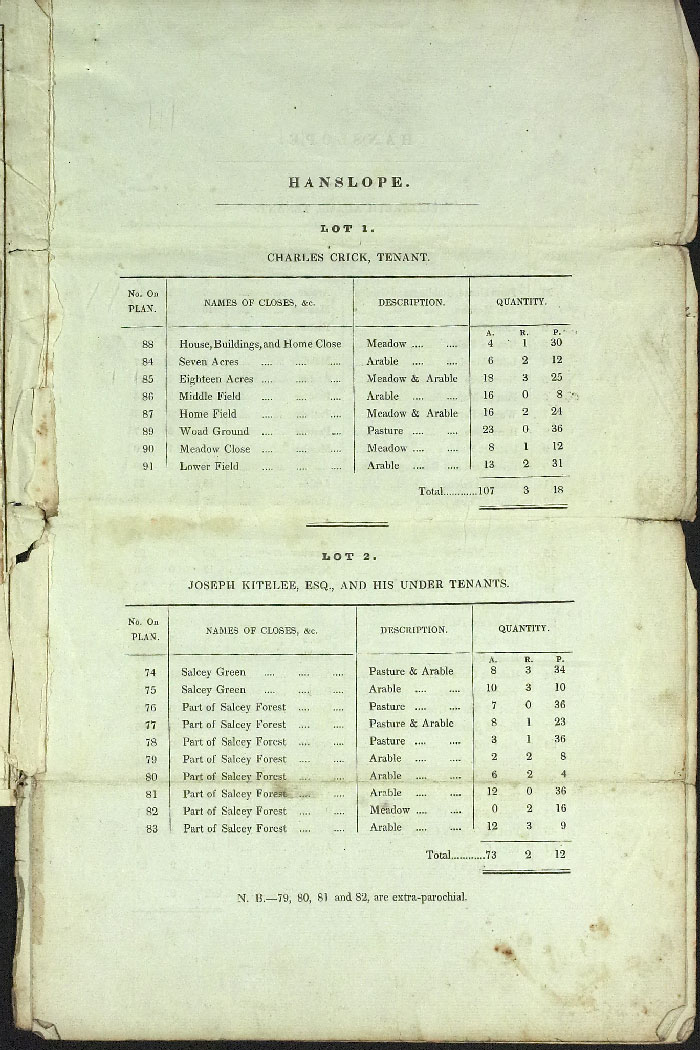 HANSLOPE.
LOT 1.
CHARLES CRICK, TENANT.
No. On PLAN. NAMES OF CLOSES, &c. DESCRIPTION. QUANTITY.
A. R. P.
88 House, Buildings, and Home Close Meadow .... .... 4 1 30
84 Seven Acres .... .... .... Arable .... .... 6 2 12
85 Eighteen Acres .... .... .... Meadow & Arable 18 3 25
86 Middle Field .... .... .... Arable .... .... 16 0 8
87 Home Field .... .... .... Meadow & Arable 16 2 24
89 Woad Ground .... .... .... Pasture .... .... 23 0 36
90 Meadow Close .... .... .... Meadow .... .... 8 1 12
91 Lower Field .... .... .... Arable .... .... 13 2 31
Total............107 3 18
LOT 2.
JOSEPH KITELEE, ESQ., AND HIS UNDER TENANTS.
No. On PLAN. NAMES OF CLOSES, &c. DESCRIPTION. QUANTITY.
A. R. P.
74 Salcey Green .... .... .... Pasture & Arable 8 3 34
75 Salcey Green .... .... .... Arable .... .... 10 3 10
76 Part of Salcey Forest .... .... Pasture .... .... 7 0 36
77 Part of Salcey Forest .... .... Pasture & Arable 8 1 23
78 Part of Salcey Forest .... .... Pasture .... .... 3 1 36
79 Part of Salcey Forest .... .... Arable .... .... 2 2 8
80 Part of Salcey Forest .... .... Arable .... .... 6 2 4
81 Part of Salcey Forest .... .... Arable .... .... 12 0 36
82 Part of Salcey Forest .... .... Meadow .... .... 0 2 16
83 Part of Salcey Forest .... .... Arable .... .... 12 3 9
Total............73 2 12
N. B.—79, 80, 81 and 82, are extra-parochial.